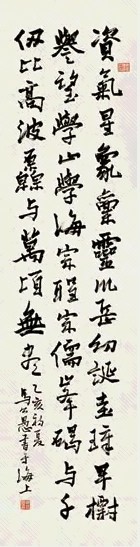 資氣星象稟靈川岳幼誕圭璋早樹
譽望學山學海宗聖宗儒峯碣与千
仞比高波
与萬頃無
乙亥初夏
馬公愚書于海上